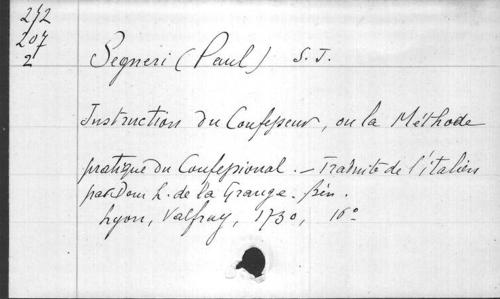 272
207
2
Segneri (Paul) S. J.
Instruction du Confesseur, ou la Méthode
pratique du Confessional. — Traduite de l'italien
par Dom L. de la Grange. bén.
Lyon, Valfray, 1730, 16°